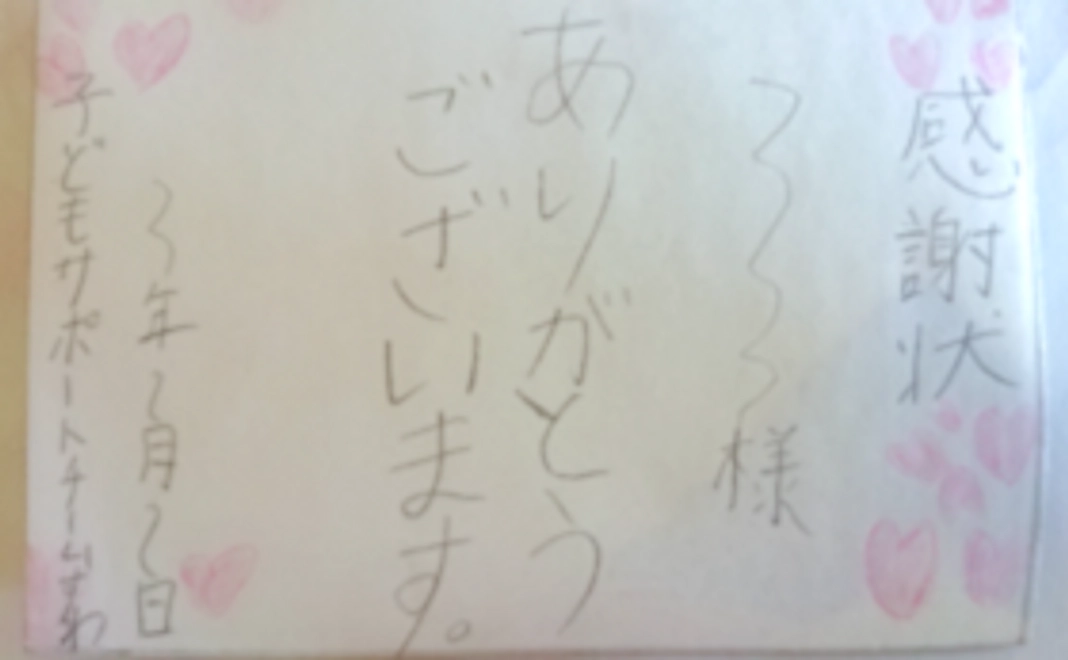 感謝状
〜〜〜様
ありがとう
ございます。
〜年〜月〜日
子どもサポートチームすわ